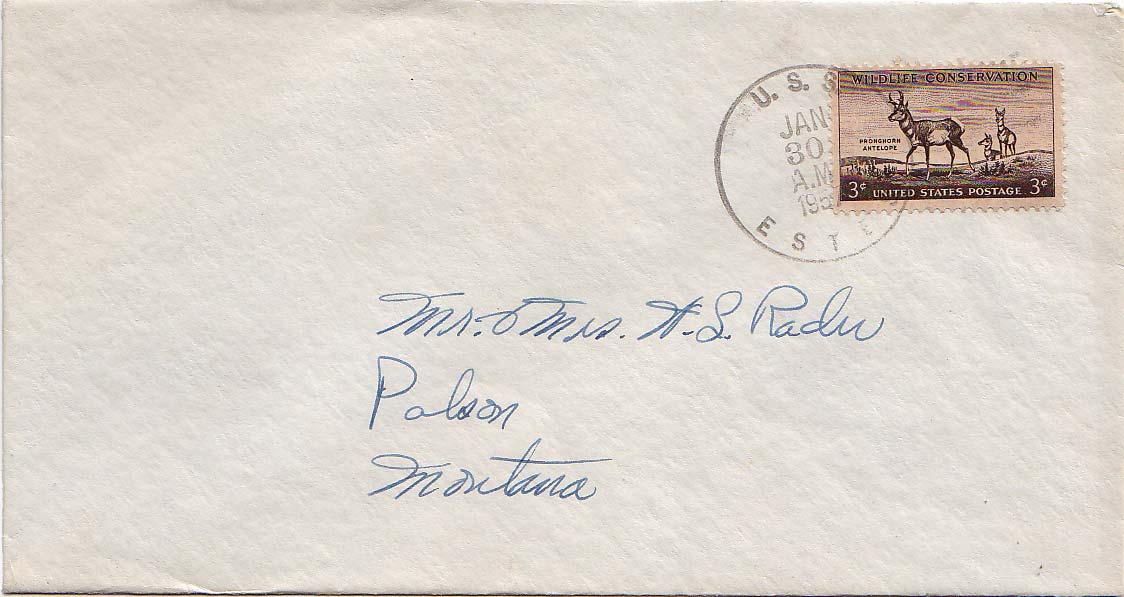 U. S. S.
JAN
30
A.M
195
E S T E
WILDLIFE CONSERVATION
PRONGHORN
ANTELOPE
3¢ UNITED STATES POSTAGE 3¢
Mr. & Mrs. H. L.
Polson
Montana